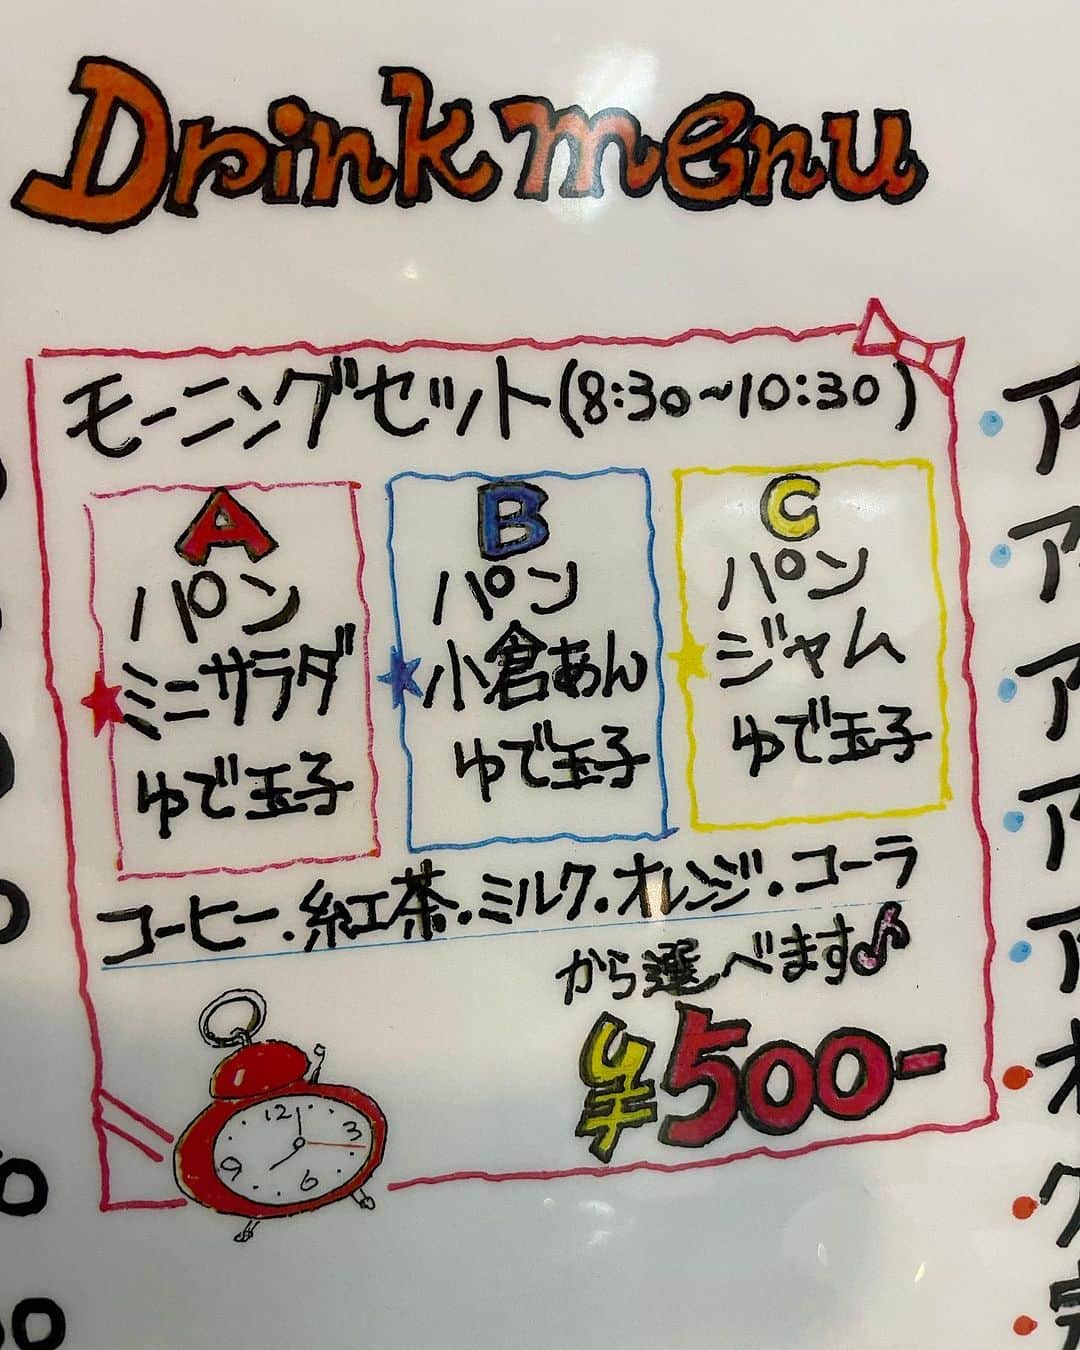 Drink menu
モーニングセット(8:30~10:30)
A
パン
ミニサラダ
ゆで玉子
B
パン
小倉あん
ゆで玉子
C
パン
ジャム
ゆで玉子
コーヒー・紅茶・ミルク・オレンジ・コーラ
から選べます♪
¥500-
12
3
6
9